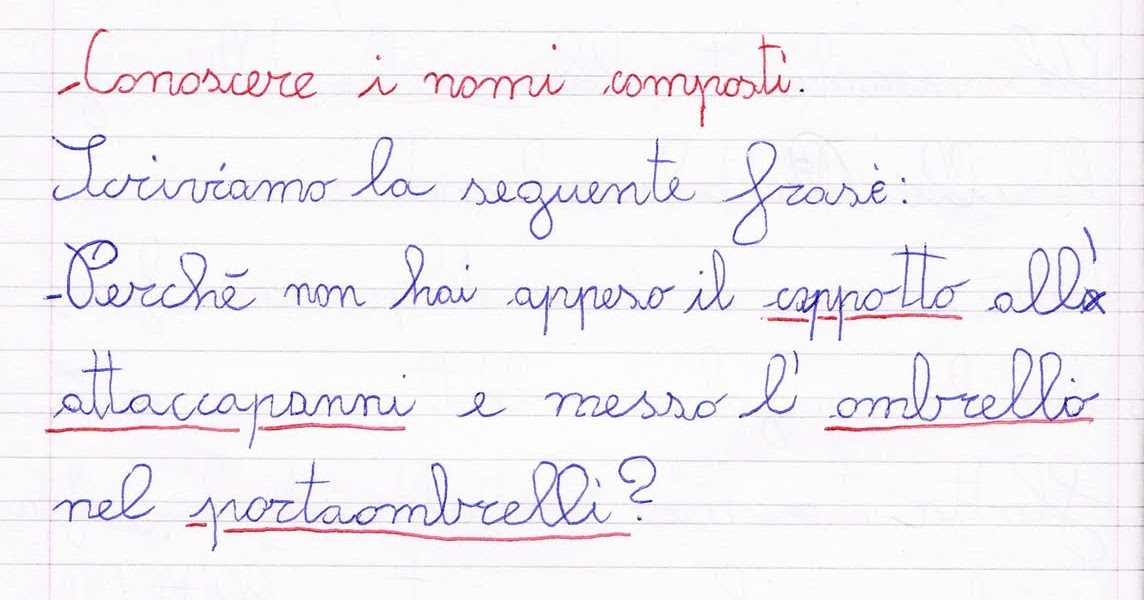 -Conoscere i nomi composti.
Scriviamo la seguente frase:
-Perché non hai appeso il cappotto all'
attaccapanni e messo l'ombrello
nel portaombrelli?